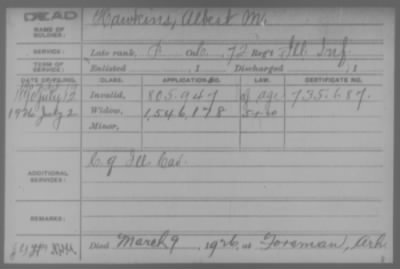 DEAD
NAME OF SOLDIER: Hawkins, Albert M.
SERVICE: Late rank, P Co. C, 72 Reg't Ill Inf
TERM OF SERVICE: Enlisted , 1 Discharged , 1
DATE OF FILING. CLASS. APPLICATION NO. LAW. CERTIFICATE NO.
July 12 Invalid, 805.947 of age 735.687.
1926 July 2 Widow, 1,546,178
Minor,
ADDITIONAL SERVICES: C. 9 Ill Cav.
REMARKS:
Died March 9, 1926, at Foreman, Ark.